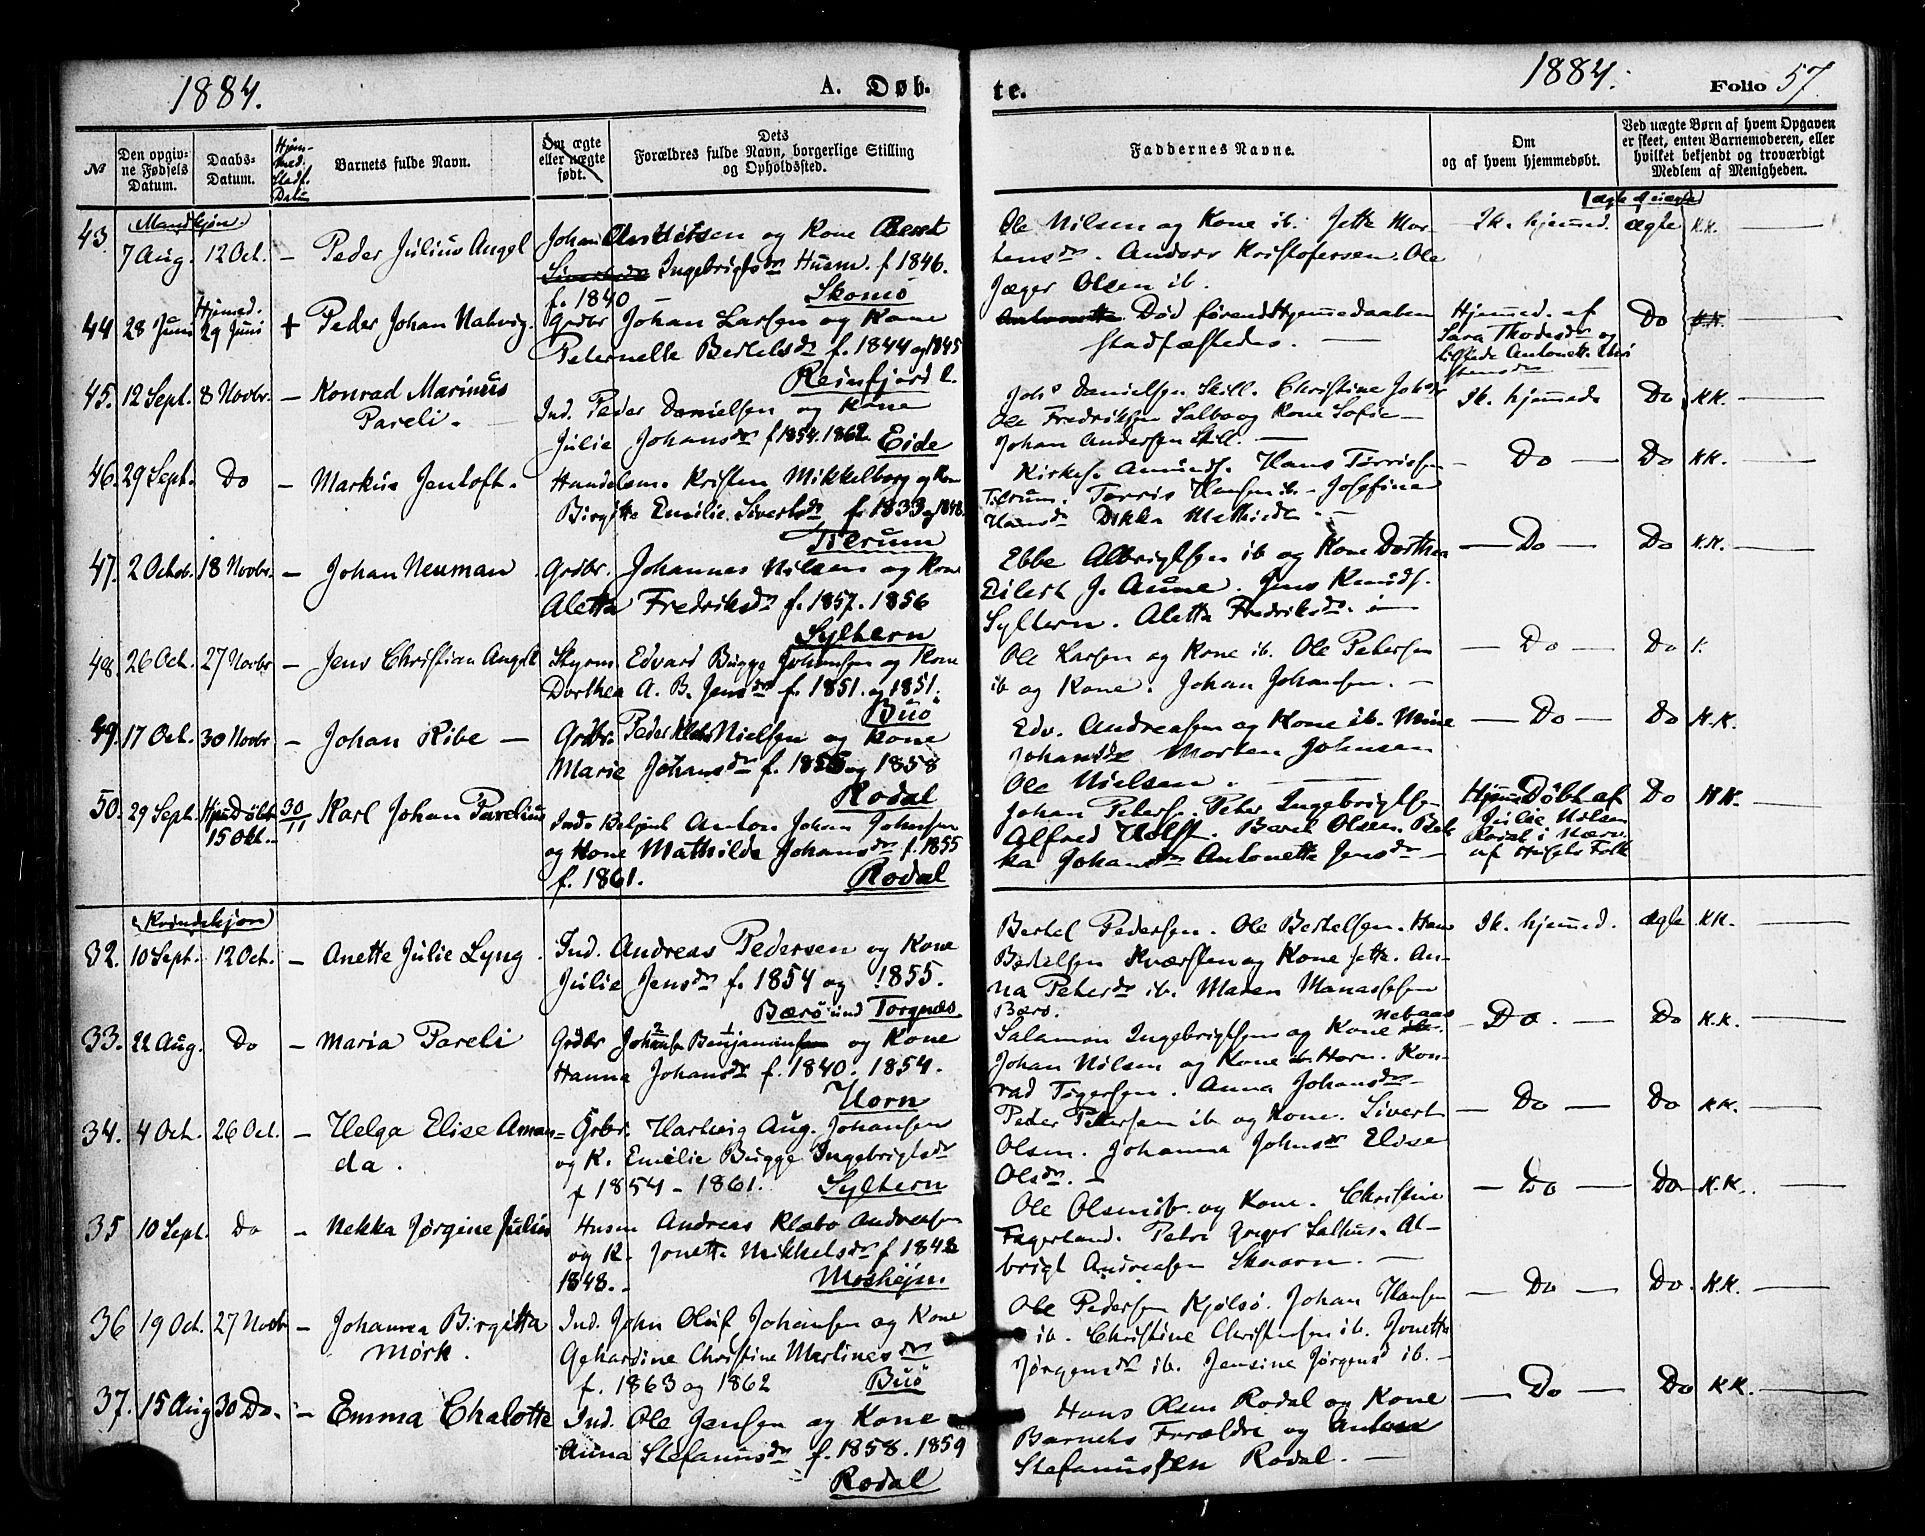 1884. A. Døb-
te. 1884. Folio 57
№ Den opgivne Fødsels Datum. Daabs-Datum. Hjemmed. Stadf. Datum Barnets fulde Navn. Om ægte eller uægte født. Dets Forældres fulde Navn, borgerlige Stilling og Opholdssted.
Faddernes Navne. Om og af hvem hjemmedøbt. Ved uægte Børn af hvem Opgaven er skeet, enten Barnemoderen, eller hvilket bekjendt og troværdigt Medlem af Menigheden.
Mandkjøn.
43. 7 Aug. 12 Oct. – Peder Julius Angel
Johan Andersen og Kone Beret
Sivertsdr Ingebrigtsdr Husm. f 1846.
f. 1840 Skomo
Ole Nilsen og Kone ib. Jetta Mor-
tensdr. Anders Kristofersen. Ole
Jæger Olsen ib.
Ik. hjemmed. ægte K.K.
44 28 Juni Hjemmed. 29 Juni + Peder Johan Nahvig.
Grdbr Johan Larsen og Kone
Peternelle Bertelsdr f. 1844 og 1845
Reinfjord l.
Antonette Død førend Hjemmedaaben
stadfæstedes. —
Hjemmed. af
Sara Thodesdr og
Do K.K.
45. 12 Sept. 8 Novbr. – Konrad Marinus
Pareli.
Ind. Peder Danielsen og Kone
Julie Johansdr f 1854. 1862 Eide
Johs Danielsen Skill. Christine Johsdr
Ole Fredriksen Salbo og Kone Sofie —
Johan Andersen Skill. —
Ik. hjemmed. Do KK.
46. 29 Sept. Do – Markus Jentoft.
Handelsm. Kristen Mikkelborg og Kone
Birgitte Emilie Sivertsdr f. 1833 og 1848.
Tilrum
Kirkes. Amunds. Hans Tørrissen
Tilrum. Tørris Hansen ib – Josefine
Hansdr
Do Do KK.
47. 2 Octob. 18 Novbr. – Johan Neuman
Grdbr. Johannes Nilsen og Kone
Aletta Fredriksdr f. 1857. 1856
Sylthern
Ebbe Albrigtsen ib og Kone Dorthea
Eilert J. Aune. Jens Knuds.
Sylthern. Aletta Fredriksdr. —
Do Do K.K.
48. 26 Oct. 27 Novbr – Jens Christian Angell
Styrm. Edvard Bugge Johansen og Kone
Dorthea A. B. Jensdr f. 1851. og 1851.
Buø
Ole Larsen og Kone ib. Ole Petersen
ib og Kone. Johan Johansen. —
Do Do
49. 17 Oct. 30 Novbr – Johan Ribe —
Grdbr. Peder Klebo Nielsen og Kone
Marie Johansdr f. 1855 og 1858
Rodal
Edv. Andreasen og Kone ib. Mine
Johansdr Morten Johnsen
Ole Nielsen.
Do Do K.K.
50. 29 Sept. Hjemdøbt 15 Okt. 30/11 Karl Johan Parelius
Inds Anton Johan Johansen
og Kone Mathilde Johansdr f. 1855
f. 1861. Rodal
Johan Peters. Peter Ingebrigtse-
Alfred Holst. Beret Olsen. Bek
ka Johansdr Antonette Jensdr —
Hjemmedøbt af
Julie Nilsen
Rodal i Nærv.
af Husets Folk
Do K.K.
Kvindekjøn
32. 10 Sept. 12 Oct. – Anette Julie Lyng.
Ind. Andreas Pedersen og Kone
Julie Jensdr f. 1854 og 1855.
Bærø und Torgnæs
Bertel Pedersen. Ole Bertelsen. Hans
Bertelsen Kværsten og Kone Jetta. An-
na Petersdr ib. Maren Manassesen
Bærø.
Ik. hjemmed. ægte KK.
33. 22 Aug. Do – Maria Pareli
Grdbr Johansen Benjaminsen og Kone
Hanna Johansdr f. 1840. 1854.
Horn
Salamon Ingebrigtsen og Kone Nebaas
Johan Nilsen og Kone ib. Horn. Kon-
rad Tøgersen. Anna Johansdr —
Do. Do K.K.
34. 4 Oct. 26 Oct. – Helga Elise Aman-
da.
Grbr. Hartvig Aug. Johansen
og K. Emelie Bugge Ingebrigtsdr
f 1854 – 1861. Sylthern
Peder Petersen ib og Kone. Sivert
Olsen. Johanna Johnsdr Elise
Olsdr. —
Do Do KK.
35 10 Sept. Do – Nekka Jørgine Julius
Husm Andreas Klæbo Andreasen
og K. Jonetta Mikkelsdr f 1842
1848. Moshejm
Ole Olsen ib. og Kone. Christine
Fagerland. Petri Jæger Salhus. Al-
brigt Andreasen Skaarn. —
Do Do K.K.
36 19 Oct. 27 Novbr – Johanna Birgitta
Mørk.
Ind. John Oluf Johansen og Kone
Gehardine Christine Martinesdr
f. 1863 og 1862 Buø
Ole Pedersen Kjølsø. Johan Hansen
ib. Christine Christensen ib. Jonetta
Jørgensdr ib. Jensine Jørgensd ib. —
Do Do. KK.
37. 15 Aug 30 Do. – Emma Chalotte
Ind. Ole Jensen og Kone
Anna Stefanusdr f. 1858. 1859
Rodal
Hans Olsen Rodal og Kone
Barnets Forældre og Anton
Stefanussen Rodal. —
Do Do KK.